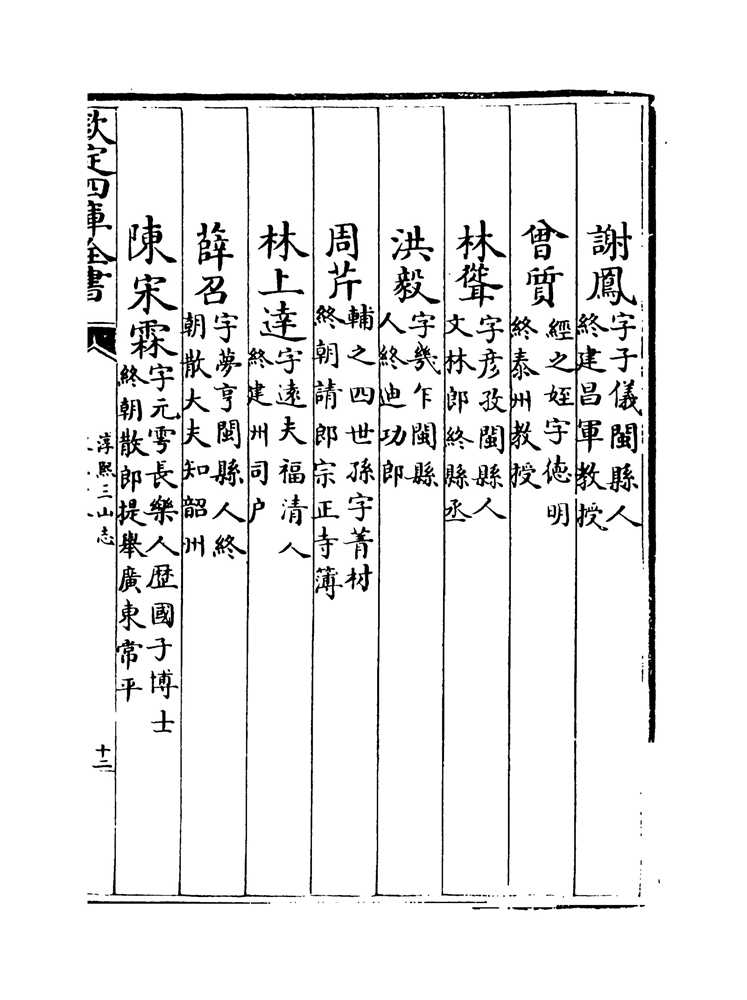 謝鳳字子儀閩縣人終建昌軍教授
曾質經之姪字德明終泰州教授
林聳字彦孜閩縣人文林郎終縣丞
洪毅字幾乍閩縣人終迪功郎
周芹輔之四世孫字菁材終朝請郎宗正寺簿
林上達字逺夫福清人終建州司户
薛召字夢亨閩縣人終朝散大夫知韶州
陳宋霖字元雩長樂人歴國子博士終朝散郎提舉廣東常平
欽定四庫全書
淳熙三山志
十二